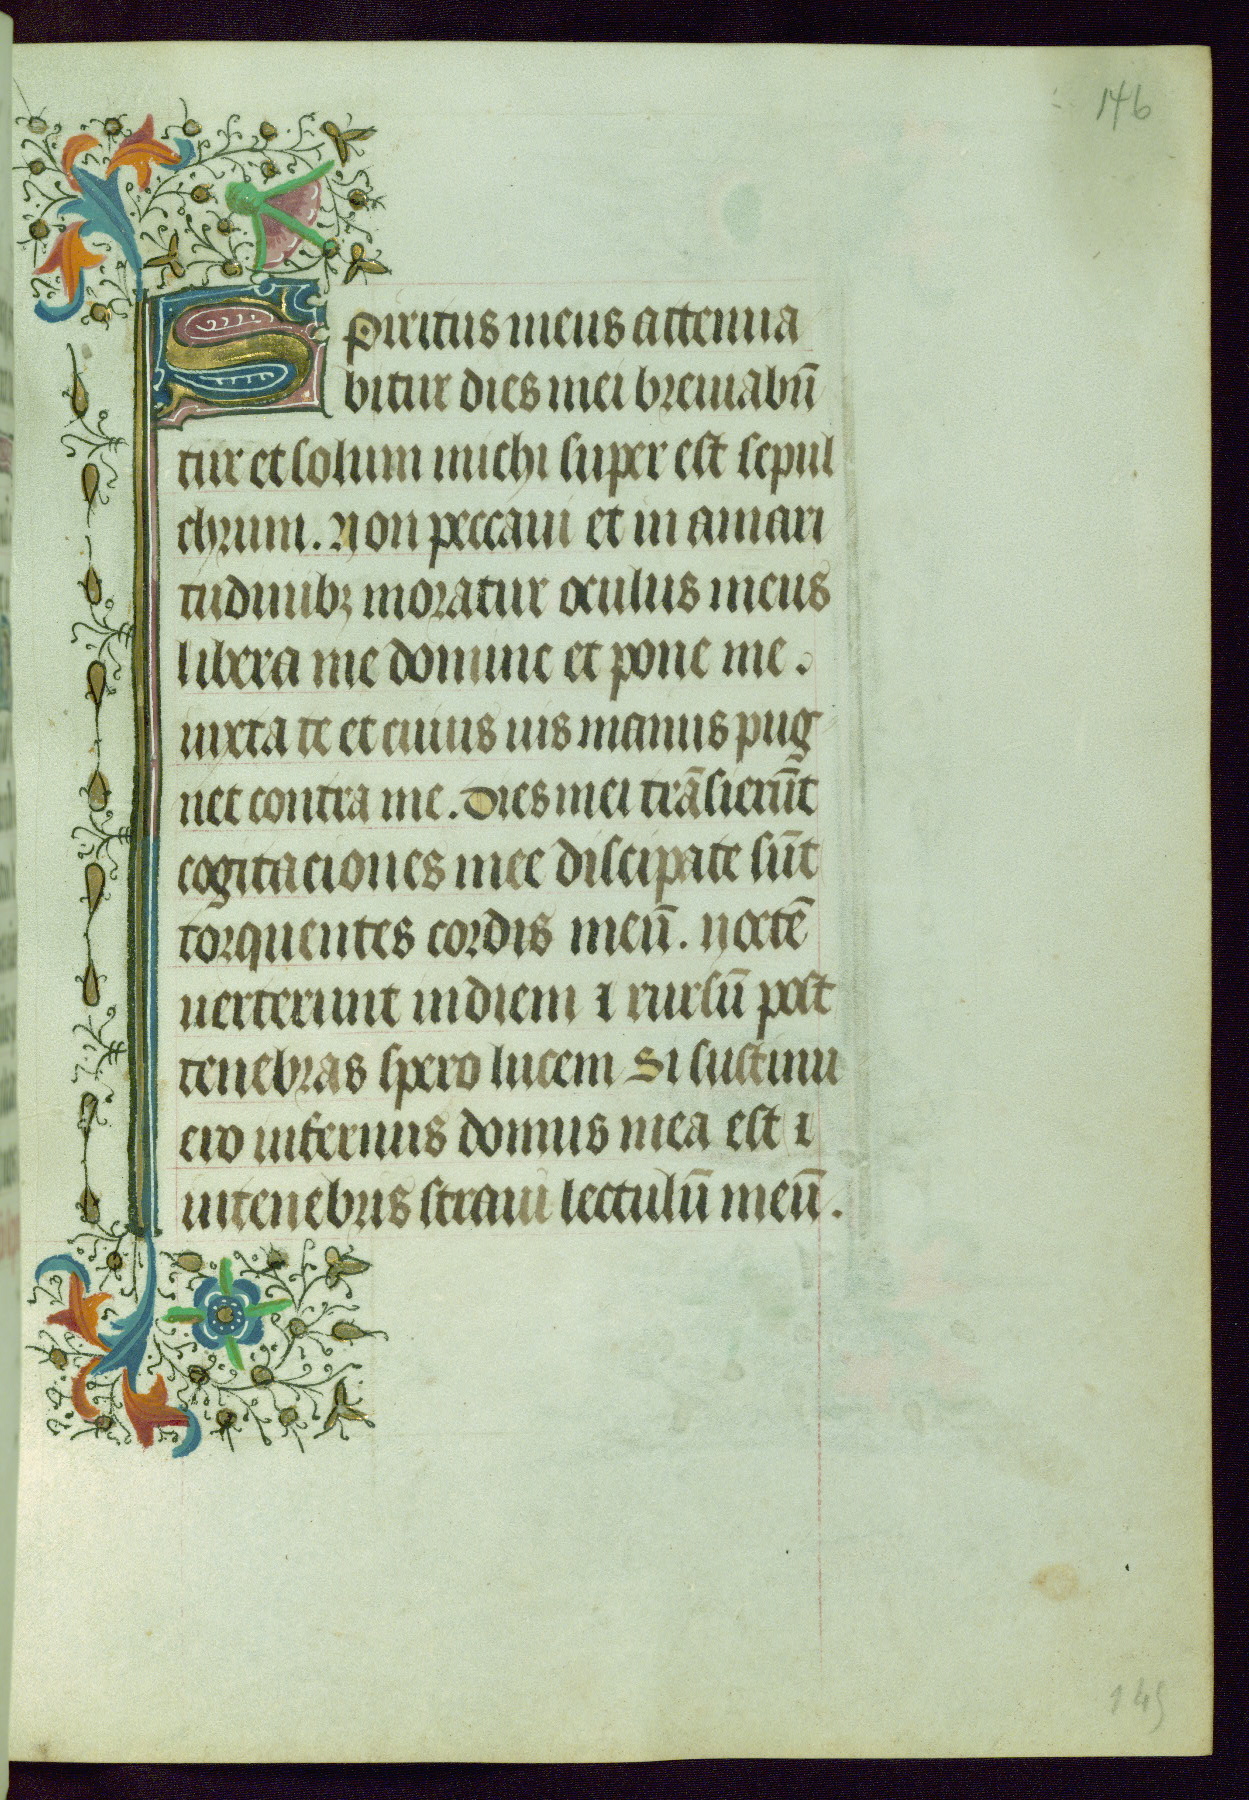 146
Spiritus meus attenua
bitur dies mei breuiabũ
tur et solum michi super est sepul
chrum. Non peccaui et in amari
tudinibꝫ moratur oculus meus
libera me domine et pone me.
iuxta te et cuius uis manus pug
net contra me. Dies mei trãsierũt
cogitaciones mee discipate sũt
torquentes cordis meũ. noctẽ
uerterunt in diem ⁊ rursũ post
tenebras spero lucem Si sustinu
ero infernus domus mea est ⁊
in tenebris straui lectulũ meũ.
145